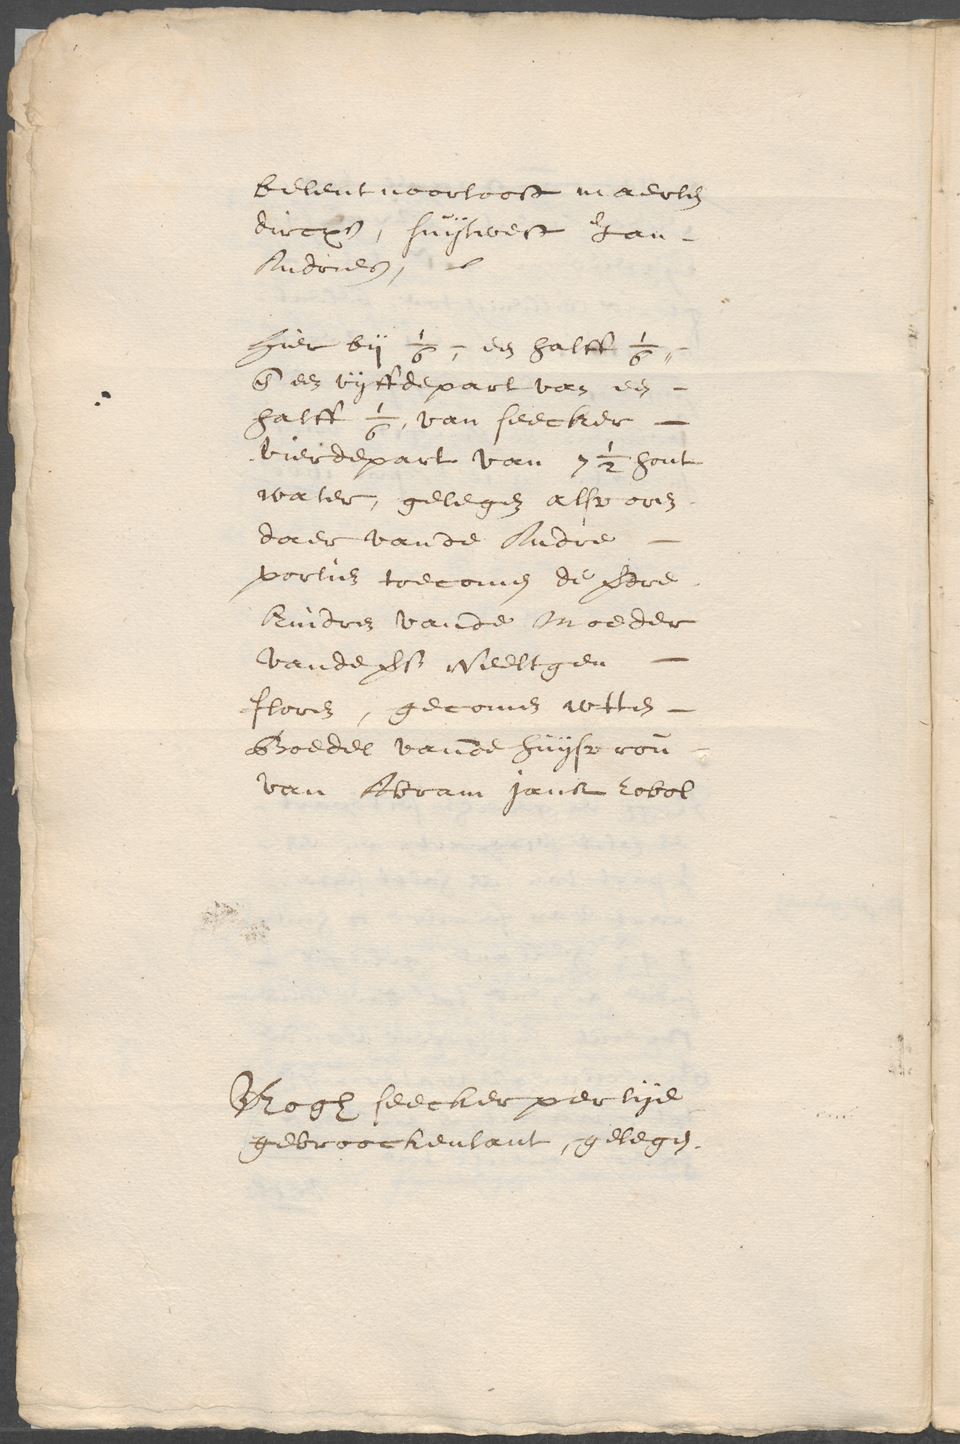 belent noortoost maerten
dircxs, suijtwest Jan -
Andries,
Hier bij 1/6, en halff 1/6,, -
en vijffdepart van een -
halff 1/6, van seecker -
vierdepart van 7 1/2 hont
water, gelegen alsvoren
daer vande Andre -
portien toecomen de
kindren vande Moeder
vande Neeltgen -
floren, gecomen wtten -
Boedel vande huijsvrou -
van Abram jansz Robol
Nogh seecker pertije
gebroockenlant, gelegen.